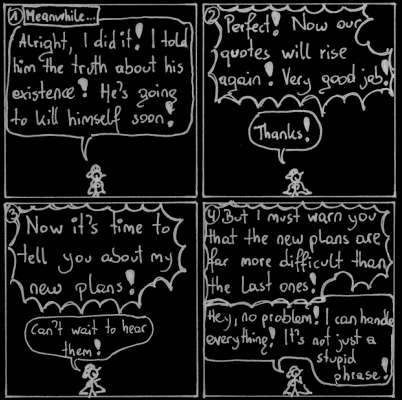 1 Meanwhile...
Alright, I did it! I told
him the truth about his
existence! He's going
to kill himself soon!
2
Perfect! Now our
quotes will rise
again! Very good job!
Thanks!
3
Now it's time to
tell you about my
new plans!
Can't wait to hear
them!
4 But I must warn you
that the new plans are
far more difficult than
the last ones!
Hey, no problem! I can handle
everything! It's not just a
stupid
phrase!